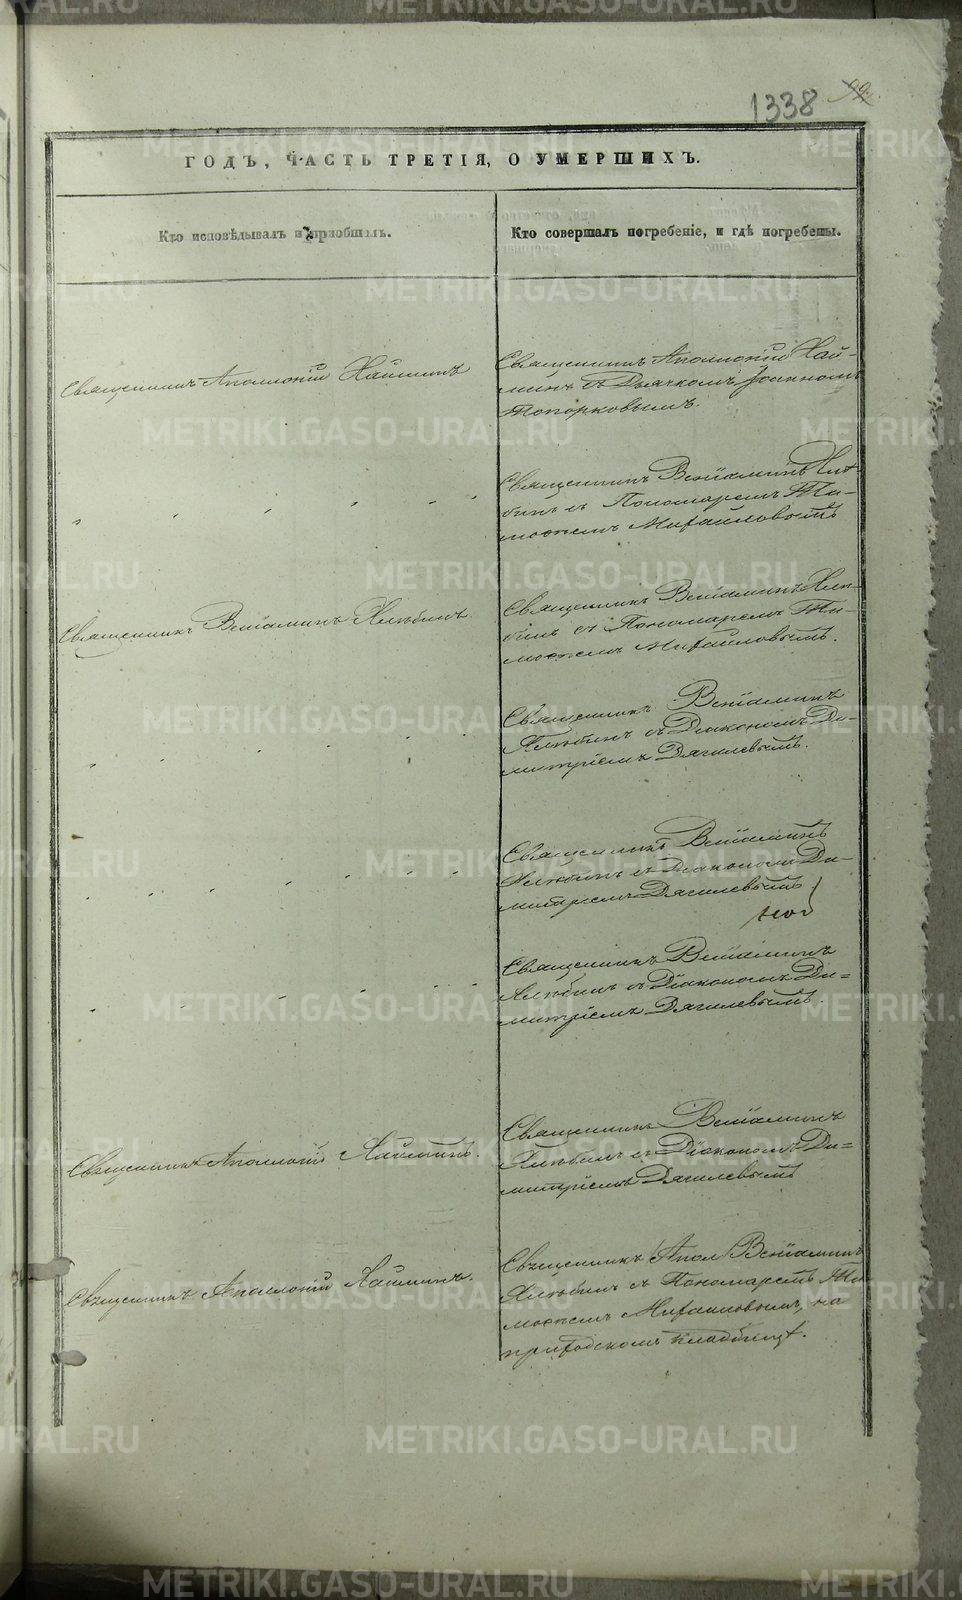 1338 99.
ГОДЪ, ЧАСТЬ ТРЕТІЯ, О УМЕРШИХЪ.
Кто исповѣдывалъ и пріобщалъ.
Кто совершалъ погребеніе, и гдѣ погребены.
Священникъ Аполлоній Наймпнъ
Священникъ Аполлоній Най-
минъ съ Дьячкомъ Іоанномъ
Топорковымъ.
Священникъ Веніаминъ
съ Пономаремъ Ти-
моѳеемъ Михайловымъ
Священникъ Веніаминъ Хлѣбинъ
Священникъ Веніаминъ Хлѣ-
бинъ съ Пономаремъ Ти-
моѳеемъ Михайловымъ.
Священникъ Веніаминъ
Хлѣбинъ съ Діакономъ Ди-
митріемъ Дягилевымъ.
Священникъ Веніаминъ
Хлѣбинъ съ Діакономъ Ди-
митріемъ Дягилевымъ
Священникъ Веніаминъ
Хлѣбинъ съ Діакономъ Ди=
митріемъ Дягилевымъ.
Священникъ Аполлоній Найминъ.
Священникъ Веніаминъ
Хлѣбинъ съ Діакономъ Ди=
митріемъ Дягилевымъ
Священникъ Аполлоній Найминъ.
Священникъ Апол Веніаминъ
Хлѣбинъ съ Пономаремъ Ти
моѳеемъ Михайловымъ, на
приходскомъ кладбищѣ.
METRIKI.GASO-URAL.RU